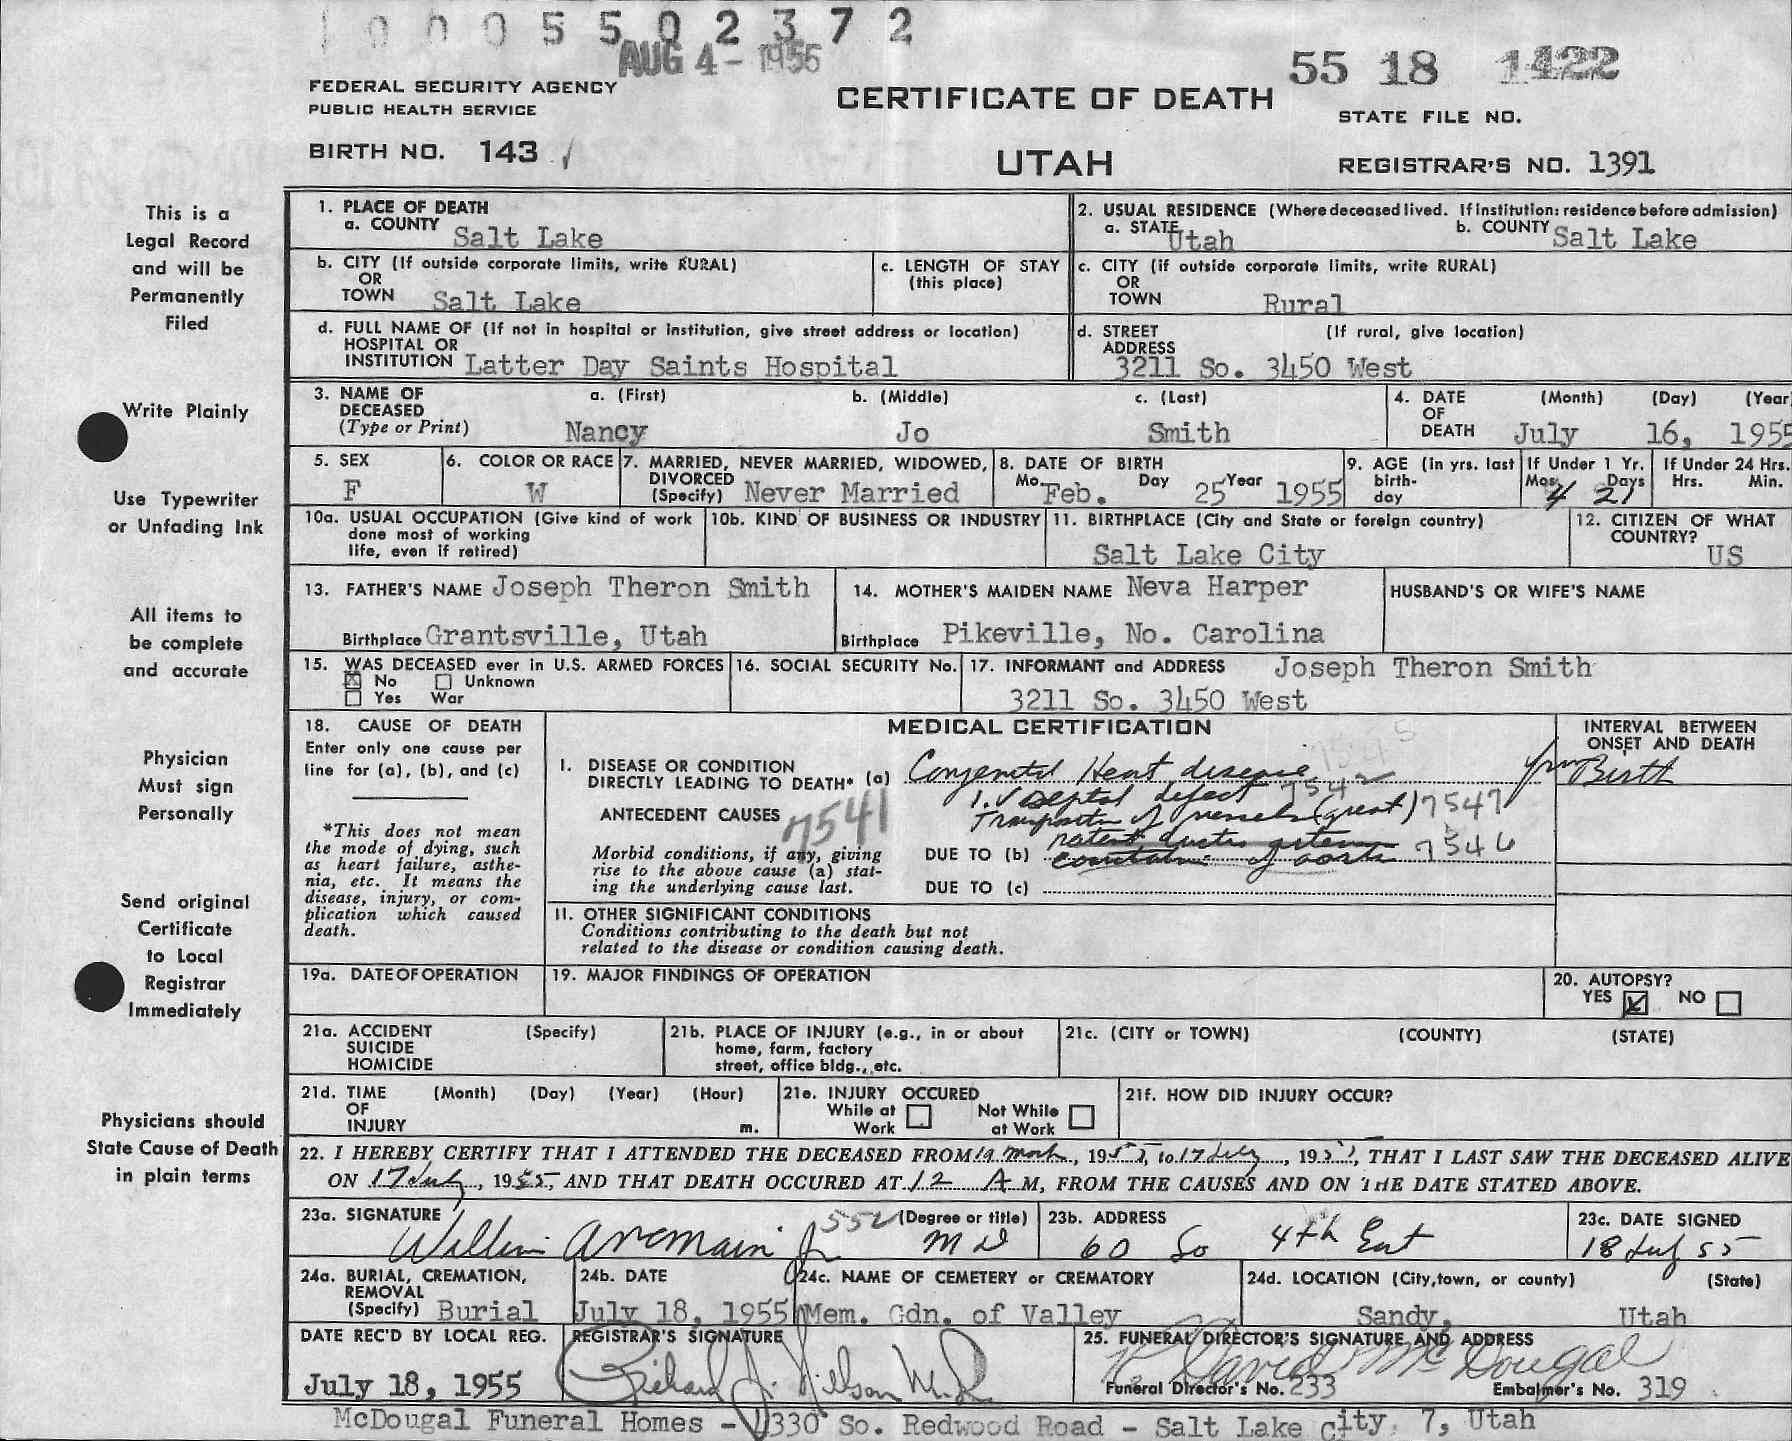 1 0 0 0 5 5 0 2 3 7 2
AUG 4 - 1955
55 18 1422
FEDERAL SECURITY AGENCY
PUBLIC HEALTH SERVICE
CERTIFICATE OF DEATH
STATE FILE NO.
BIRTH NO. 143
UTAH
REGISTRAR'S NO. 1391
This is a
Legal Record
and will be
Permanently
Filed
Write Plainly
Use Typewriter
or Unfading Ink
All items to
be complete
and accurate
Physician
Must sign
Personally
Send original
Certificate
to Local
Registrar
Immediately
Physicians should
State Cause of Death
in plain terms
1. PLACE OF DEATH
a. COUNTY Salt Lake
2. USUAL RESIDENCE (Where deceased lived. If institution: residence before admission)
a. STATE Utah b. COUNTY Salt Lake
b. CITY (If outside corporate limits, write RURAL)
OR
TOWN Salt Lake
c. LENGTH OF STAY
(this place)
c. CITY (if outside corporate limits, write RURAL)
OR
TOWN Rural
d. FULL NAME OF (If not in hospital or institution, give street address or location)
HOSPITAL OR
INSTITUTION Latter Day Saints Hospital
d. STREET (If rural, give location)
ADDRESS
3211 So. 3450 West
3. NAME OF a. (First) b. (Middle) c. (Last)
DECEASED
(Type or Print) Nancy Jo Smith
4. DATE (Month) (Day) (Year
OF
DEATH July 16, 1955
5. SEX
F
6. COLOR OR RACE
W
7. MARRIED, NEVER MARRIED, WIDOWED,
DIVORCED
(Specify) Never Married
8. DATE OF BIRTH
Mo. Feb. Day 25 Year 1955
9. AGE (in yrs. last
birth-
day
If Under 1 Yr.
Mos. Days
4 21
If Under 24 Hrs.
Hrs. Min.
10a. USUAL OCCUPATION (Give kind of work
done most of working
life, even if retired)
10b. KIND OF BUSINESS OR INDUSTRY
11. BIRTHPLACE (City and State or foreign country)
Salt Lake City
12. CITIZEN OF WHAT
COUNTRY?
US
13. FATHER'S NAME Joseph Theron Smith
Birthplace Grantsville, Utah
14. MOTHER'S MAIDEN NAME Neva Harper
Birthplace Pikeville, No. Carolina
HUSBAND'S OR WIFE'S NAME
15. WAS DECEASED ever in U.S. ARMED FORCES
X No Unknown
Yes War
16. SOCIAL SECURITY No.
17. INFORMANT and ADDRESS Joseph Theron Smith
3211 So. 3450 West
18. CAUSE OF DEATH
Enter only one cause per
line for (a), (b), and (c)
*This does not mean
the mode of dying, such
as heart failure, asthe-
nia, etc. It means the
disease, injury, or com-
plication which caused
death.
MEDICAL CERTIFICATION
INTERVAL BETWEEN
ONSET AND DEATH
I. DISEASE OR CONDITION
DIRECTLY LEADING TO DEATH* (a) Congenital Heart disease
Birth
1. V Septal defect 7542
ANTECEDENT CAUSES 7541
Transposition of vessels (great) 7547
Morbid conditions, if any, giving
rise to the above cause (a) stat-
ing the underlying cause last.
patent ductus
DUE TO (b) of aorta 7546
DUE TO (c)
II. OTHER SIGNIFICANT CONDITIONS
Conditions contributing to the death but not
related to the disease or condition causing death.
19a. DATE OF OPERATION
19. MAJOR FINDINGS OF OPERATION
20. AUTOPSY?
YES X NO
21a. ACCIDENT (Specify)
SUICIDE
HOMICIDE
21b. PLACE OF INJURY (e.g., in or about
home, farm, factory
street, office bldg., etc.
21c. (CITY or TOWN) (COUNTY) (STATE)
21d. TIME (Month) (Day) (Year) (Hour)
OF
INJURY m.
21e. INJURY OCCURED
While at Not While
Work at Work
21f. HOW DID INJURY OCCUR?
22. I HEREBY CERTIFY THAT I ATTENDED THE DECEASED FROM 19 March, 1955, to 17 July, 1955, THAT I LAST SAW THE DECEASED ALIVE
ON 17 July, 1955, AND THAT DEATH OCCURED AT 12 A M, FROM THE CAUSES AND ON THE DATE STATED ABOVE.
23a. SIGNATURE (Degree or title)
M D
23b. ADDRESS
60 So 4th East
23c. DATE SIGNED
18 July 55
24a. BURIAL, CREMATION,
REMOVAL
(Specify) Burial
24b. DATE
July 18, 1955
24c. NAME OF CEMETERY or CREMATORY
Mem. Gdn. of Valley
24d. LOCATION (City, town, or county) (State)
Sandy, Utah
DATE REC'D BY LOCAL REG.
July 18, 1955
REGISTRAR'S SIGNATURE
Richard J. Nilson M.D.
25. FUNERAL DIRECTOR'S SIGNATURE AND ADDRESS
David McDougal
Funeral Director's No. 233 Embalmer's No. 319
McDougal Funeral Homes - 4330 So. Redwood Road - Salt Lake city, 7, Utah